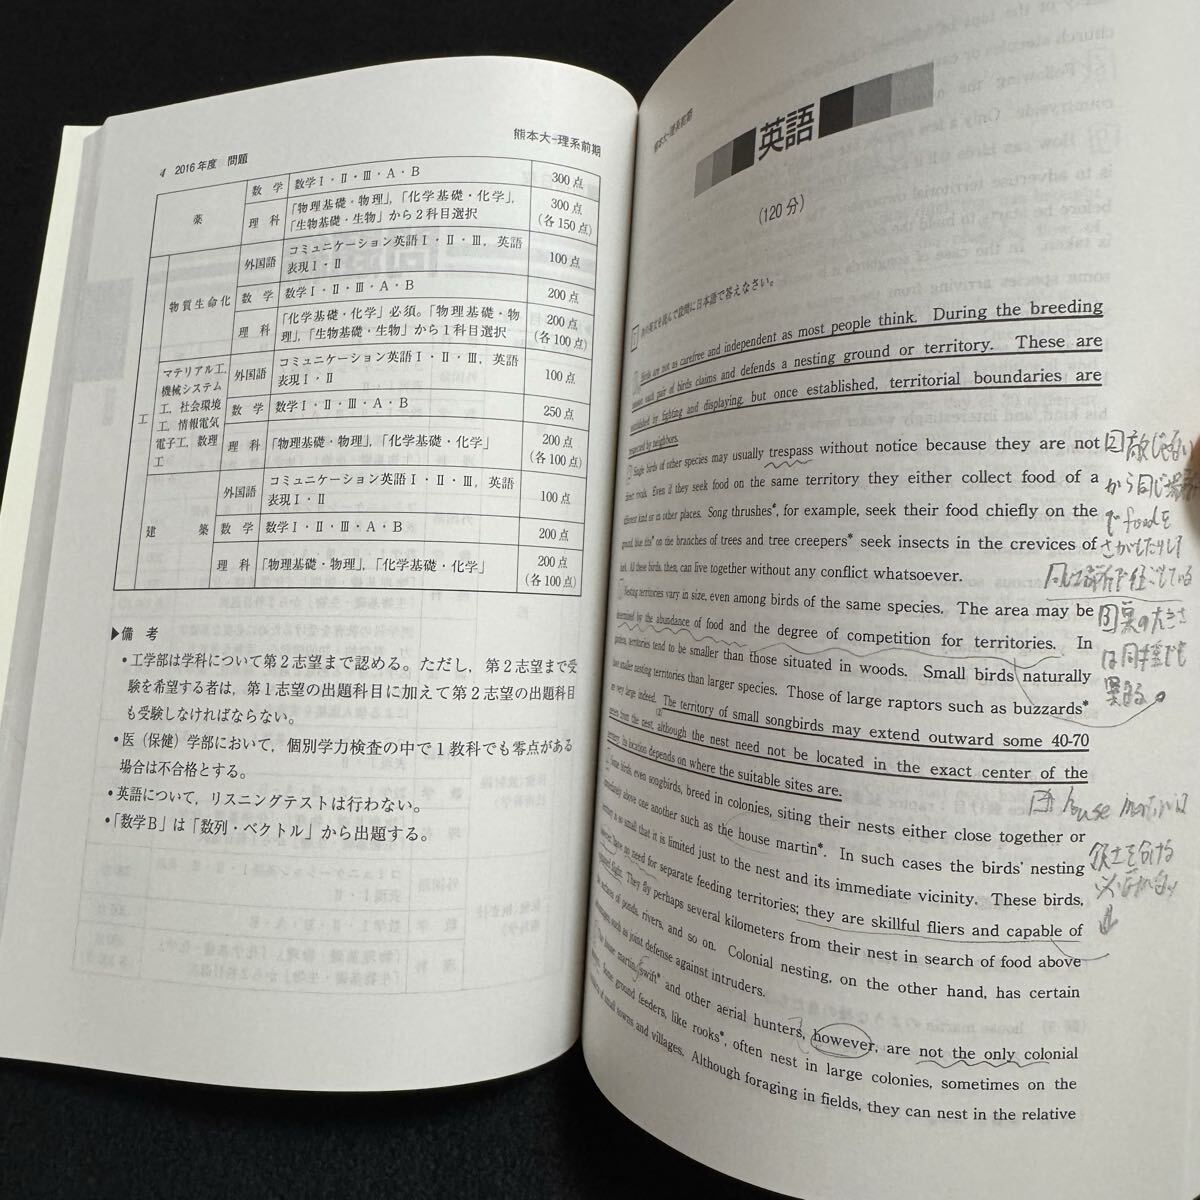 4 2016年度 問題
熊本大-理系前期
薬
数学
数学Ⅰ・Ⅱ・Ⅲ・A・B
300点
理科
「物理基礎・物理」,「化学基礎・化学」,
「生物基礎・生物」から2科目選択
300点
(各150点)
工
物質生命化
外国語
コミュニケーション英語Ⅰ・Ⅱ・Ⅲ, 英語
表現Ⅰ・Ⅱ
100点
数学
数学Ⅰ・Ⅱ・Ⅲ・A・B
200点
理科
「化学基礎・化学」必須。「物理基礎・物
理」,「生物基礎・生物」から1科目選択
200点
(各100点)
マテリアル工,
機械システム
工, 社会環境
工, 情報電気
電子工, 数理
工
外国語
コミュニケーション英語Ⅰ・Ⅱ・Ⅲ, 英語
表現Ⅰ・Ⅱ
100点
数学
数学Ⅰ・Ⅱ・Ⅲ・A・B
250点
理科
「物理基礎・物理」,「化学基礎・化学」
200点
(各100点)
建築
外国語
コミュニケーション英語Ⅰ・Ⅱ・Ⅲ, 英語
表現Ⅰ・Ⅱ
100点
数学
数学Ⅰ・Ⅱ・Ⅲ・A・B
200点
理科
「物理基礎・物理」,「化学基礎・化学」
200点
(各100点)
▶備考
・工学部は学科について第2志望まで認める。ただし, 第2志望まで受
験を希望する者は, 第1志望の出題科目に加えて第2志望の出題科目
も受験しなければならない。
・医(保健)学部において, 個別学力検査の中で1教科でも零点がある
場合は不合格とする。
・英語について, リスニングテストは行わない。
・「数学B」は「数列・ベクトル」から出題する。
熊本大-理系前期
英語
(120分)
次の英文を読んで設問に日本語で答えなさい。
Birds are not as carefree and independent as most people think. During the breeding
season each pair of birds claims and defends a nesting ground or territory. These are
established by fighting and displaying, but once established, territorial boundaries are
respected by neighbors.
Single birds of other species may usually trespass without notice because they are not
direct rivals. Even if they seek food on the same territory they either collect food of a
different kind or in other places. Song thrushes*, for example, seek their food chiefly on the
ground, blue tits* on the branches of trees and tree creepers* seek insects in the crevices of
bark. All these birds, then, can live together without any conflict whatsoever.
Nesting territories vary in size, even among birds of the same species. The area may be
determined by the abundance of food and the degree of competition for territories. In
gardens, territories tend to be smaller than those situated in woods. Small birds naturally
have smaller nesting territories than larger species. Those of large raptors such as buzzards*
are very large indeed. The territory of small songbirds may extend outward some 40-70
meters from the nest, although the nest need not be located in the exact center of the
territory; its location depends on where the suitable sites are.
Some birds, even songbirds, breed in colonies, siting their nests either close together or
immediately above one another such as the house martin*. In such cases the birds' nesting
territory is so small that it is limited just to the nest and its immediate vicinity. These birds,
however have no need for separate feeding territories; they are skillful fliers and capable of
rapid flight. They fly perhaps several kilometers from their nest in search of food above
the surface of ponds, rivers, and so on. Colonial nesting, on the other hand, has certain
advantages such as joint defense against intruders.
The house martin, swift* and other aerial hunters, however, are not the only colonial
nesters. Some ground feeders, like rooks*, often nest in large colonies, sometimes on the
outskirts of small towns and villages. Although foraging in fields, they can nest in the relative